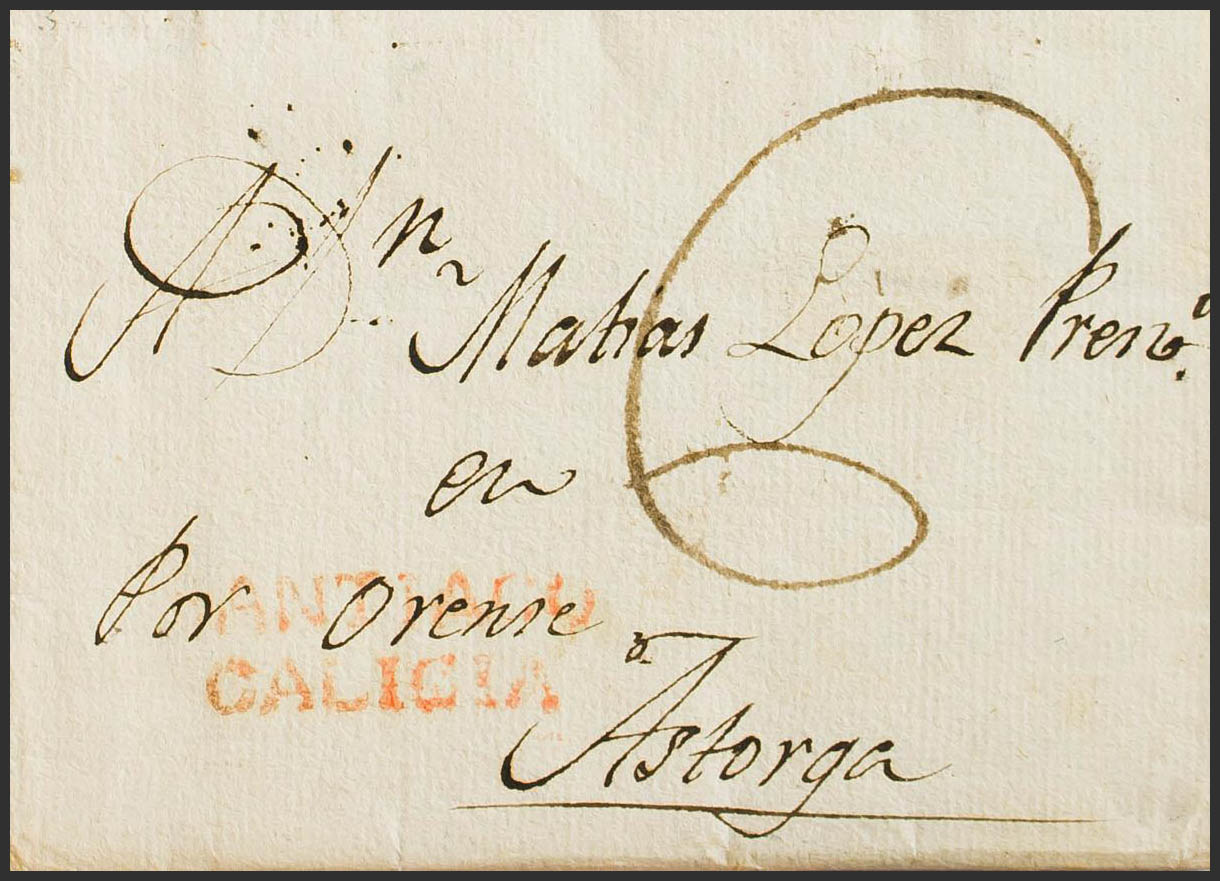 A Dn Matias Lopez Preno.
6
en
Por Orense
SANTIAGO
GALICIA
Astorga